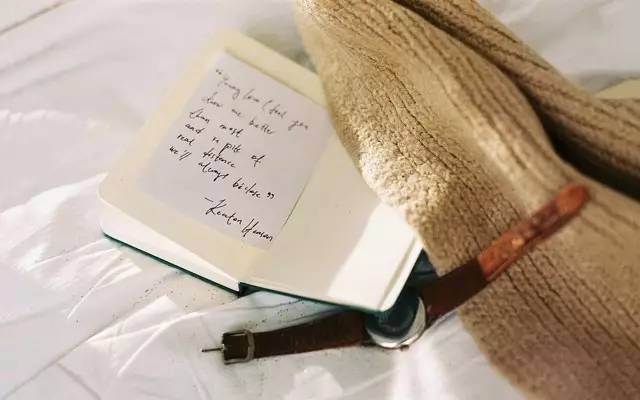 "Young love I feel you
know me better
than most
and in spite of
real distance
we'll always be close"
- Keaton Henson